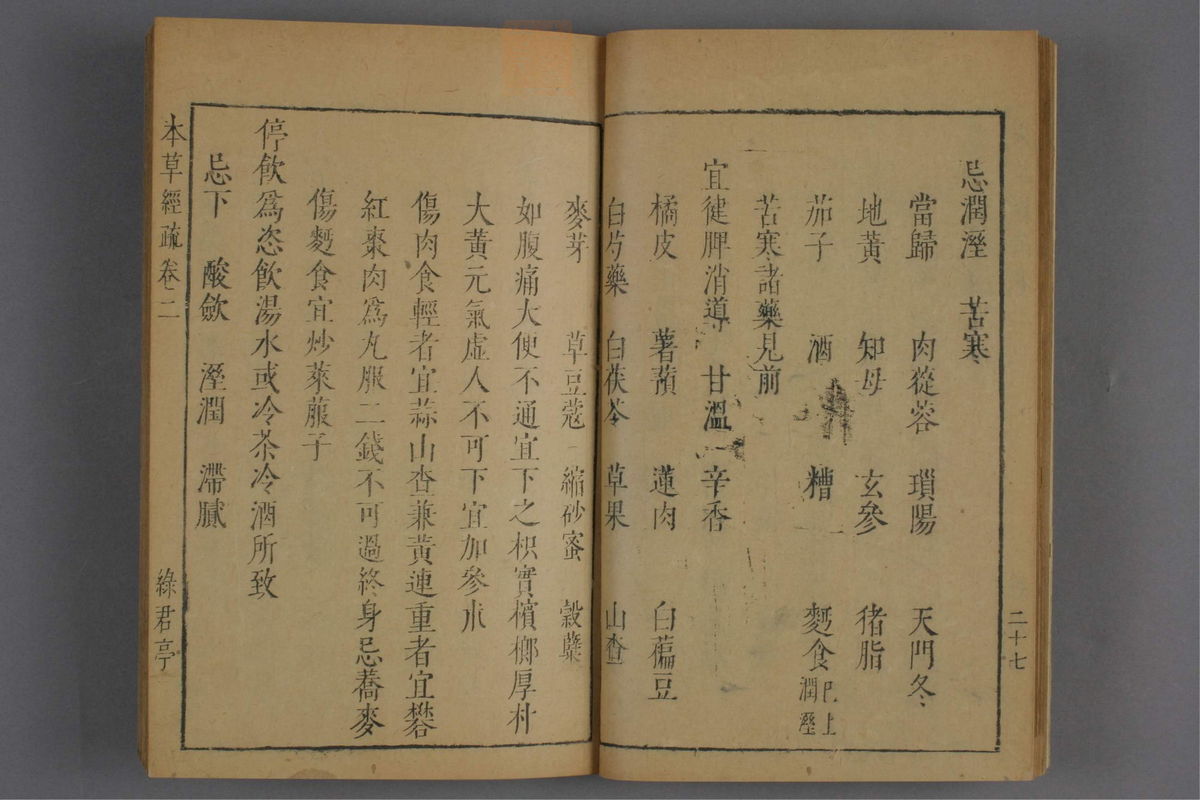 二十七
忌潤溼 苦寒
當歸 肉蓯蓉 瑣陽 天門冬
地黃 知母 玄參 猪脂
茄子 酒 糟 麪食 巳上潤溼
苦寒諸藥見前
宜健脾消導 甘溫 辛香
橘皮 薯蕷 蓮肉 白藊豆
白芍藥 白茯苓 草果 山查
麥芽 草豆蔻 縮砂蜜 穀蘖
如腹痛大便不通宜下之枳實檳榔厚朴
大黃元氣虛人不可下宜加參朮
傷肉食輕者宜蒜山查兼黃連重者宜礬
紅棗肉為丸服二錢不可過終身忌蕎麥
傷麪食宜炒萊菔子
停飲為恣飲湯水或冷茶冷酒所致
忌下 酸斂 溼潤 滯膩
本草經疏 卷二 綠君亭